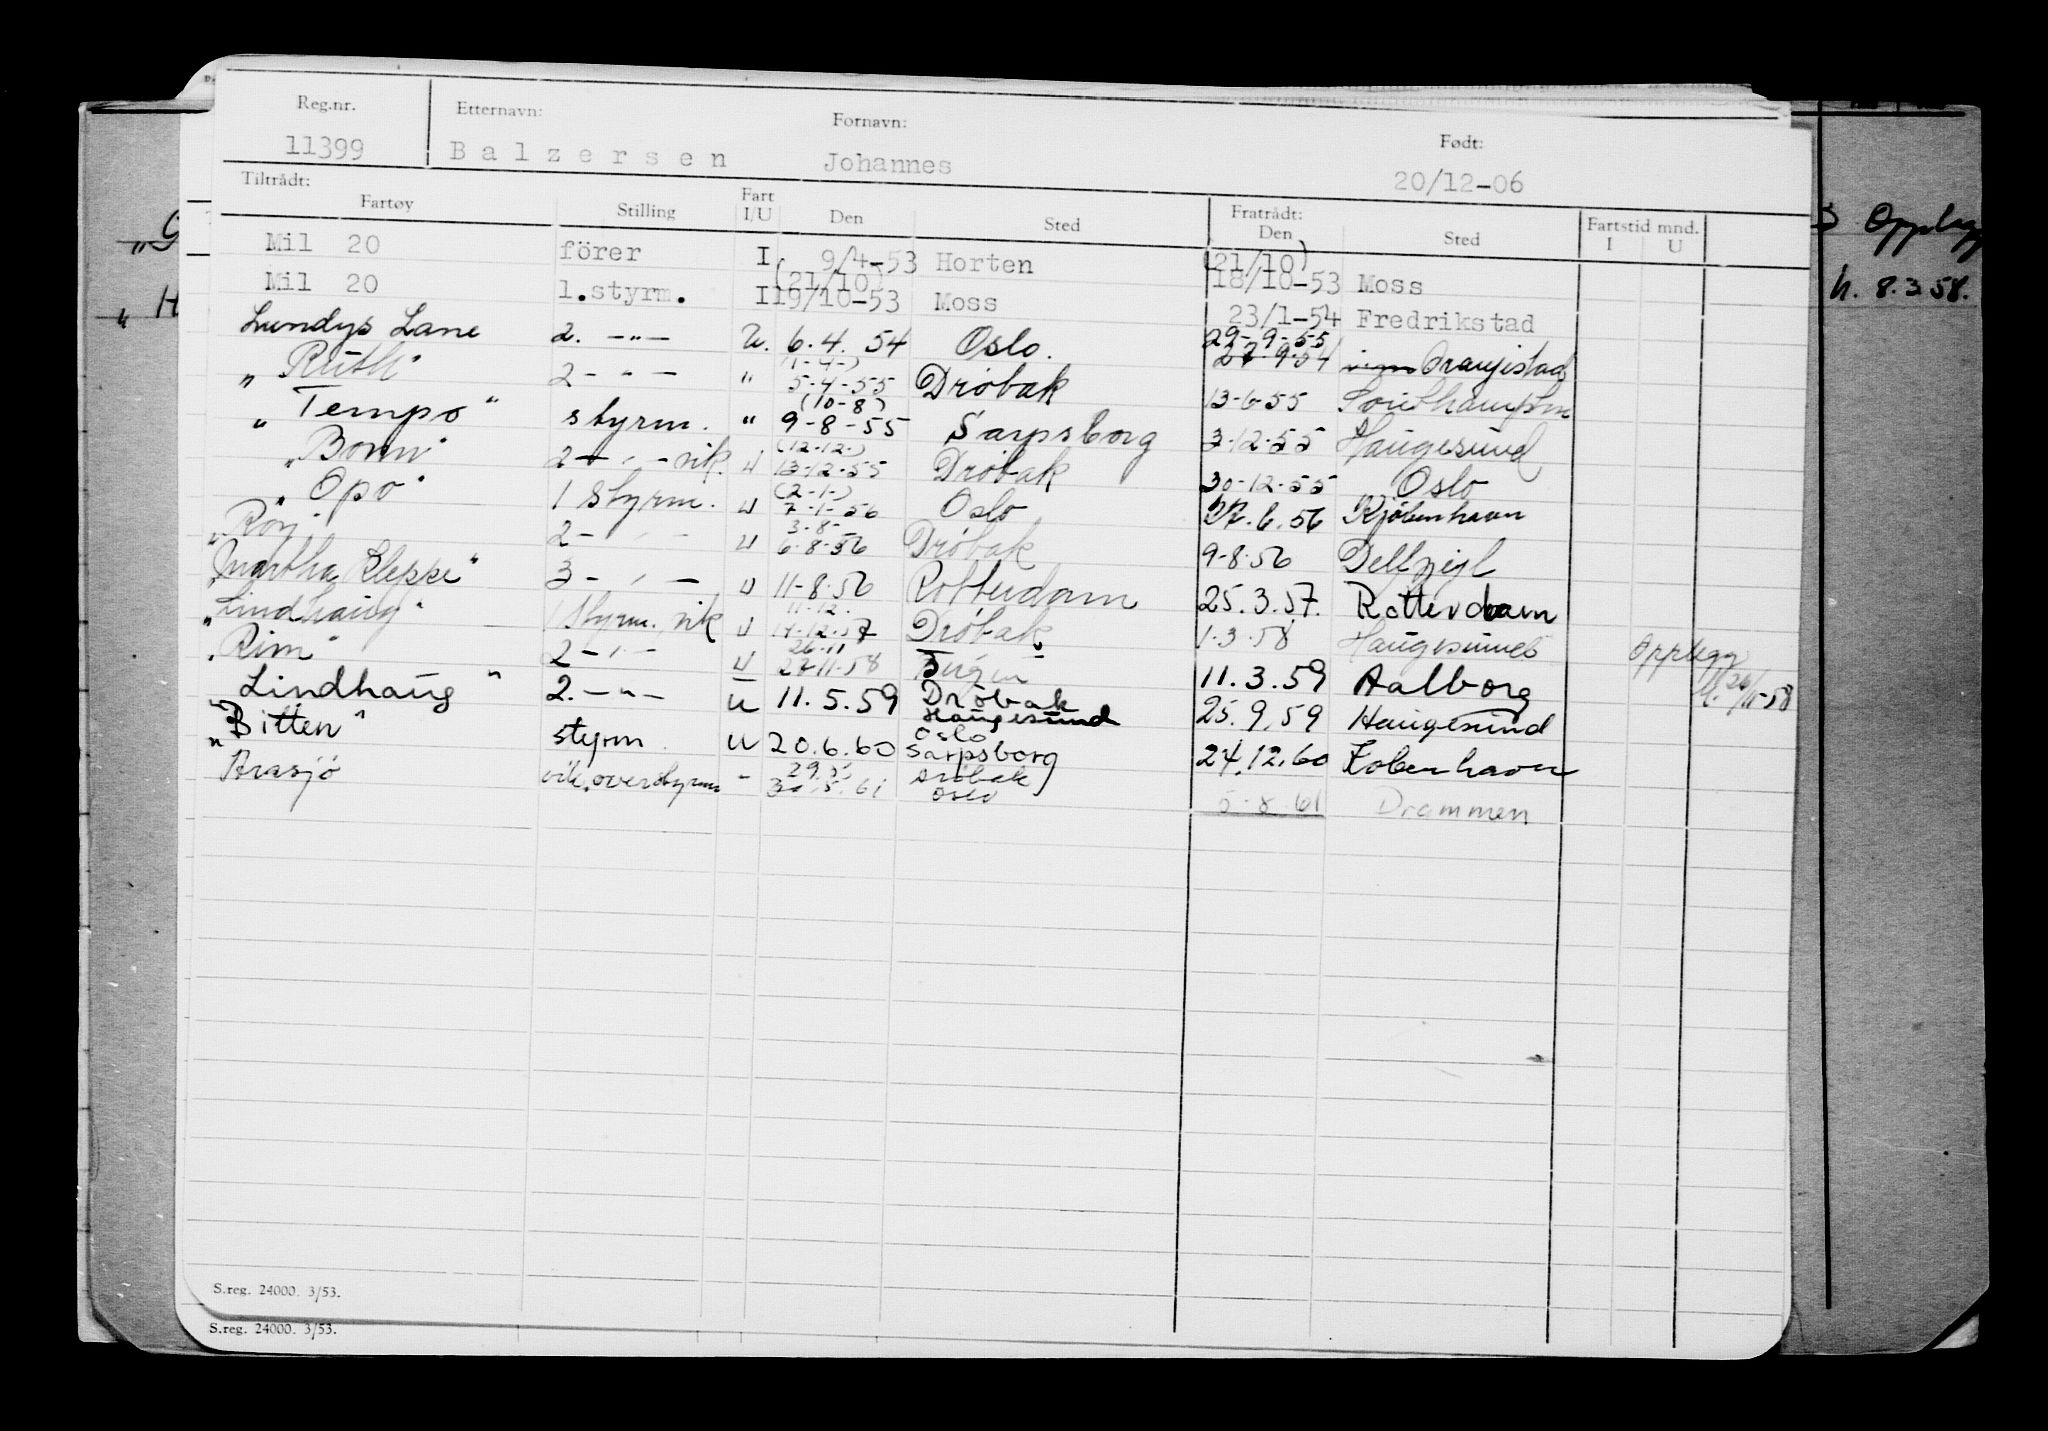 Reg.nr. Etternavn: Fornavn: Født:
11399 Balzersen Johannes 20/12-06
Tiltrådt: Fratrådt: Fartstid mnd.
Fartøy Stilling Fart I/U Den Sted Den Sted I U
Mil 20 förer I 9/4-53 Horten (21/10) 18/10-53 Moss
Mil 20 1.styrm. I (21/10) 19/10-53 Moss 23/1-54 Fredrikstad
Lundys Lane 2. -"- U. 6.4.54 Oslo. 29-9-55 27.9.54 Oranjestad
"Ruth" 2 - " - " (1-4-) 5-4-55 Drøbak 13-6-55 Southampton
"Tempo" styrm. " (10-8) 9-8-55 Sarpsborg 3-12-55 Haugesund
"Bonn" 2 - " - vik. U (12-12-) 13-12-55 Drøbak 30-12-55 Oslo
"Opo" 1 styrm. U (2-1-) 7-1-56 Oslo 27.6.56 Kjøbenhavn
"Roy" 2 - " - U 3-8- 6-8-56 Drøbak 9-8-56 Delfzijl
"Martha Kleppe" 3 - " - U 11-8-56 Rotterdam 25.3.57. Rotterdam
"Lindhaug" 1 styrm. vik U 11-12. 14-12-57 Drøbak 1-3-58 Haugesund Opplegg
"Rim" 2 - " - U 26-11 27-11-58 11.3.59 Aalborg M. 26/11-58
"Lindhaug" 2. - " - U 11.5.59 Drøbak Haugesund 25.9.59 Haugesund
"Bitten" styrm. U 20.6.60 Oslo Sarpsborg 24.12.60 København
Arasjö vik. overstyrm - 29.5 30.5.61 Drøbak Oslo 5-8-61 Drammen
Opplegg
h. 8.3.58.
S.reg. 24000. 3/53.
S.reg. 24000. 3/53.